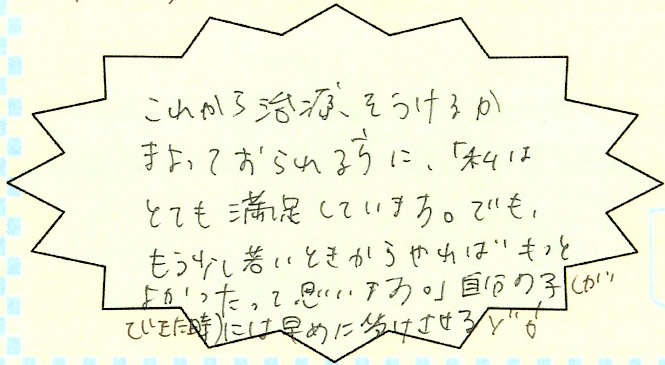 これから治療、をうけるか
まよっておられる方に、「私は
とても満足しています。でも、
もう少し若いときからやればもっと
よかったって思います。」自分の子(が
できた時)には早めに受けさせる